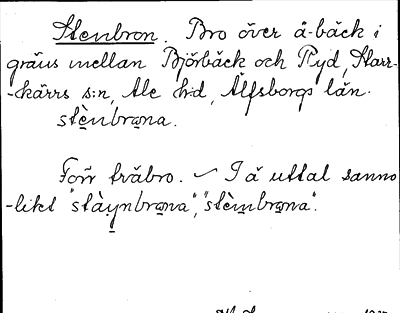 Stenbron. Bro över å-bäck i
gräns mellan Björbäck och Ryd, Starr-
-kärrs s:n, Ale hd, Älfsborgs län.
stènbrona.
Förr träbro. I ä uttal sanno
-likt "stàynbrona", "stèinbrona".